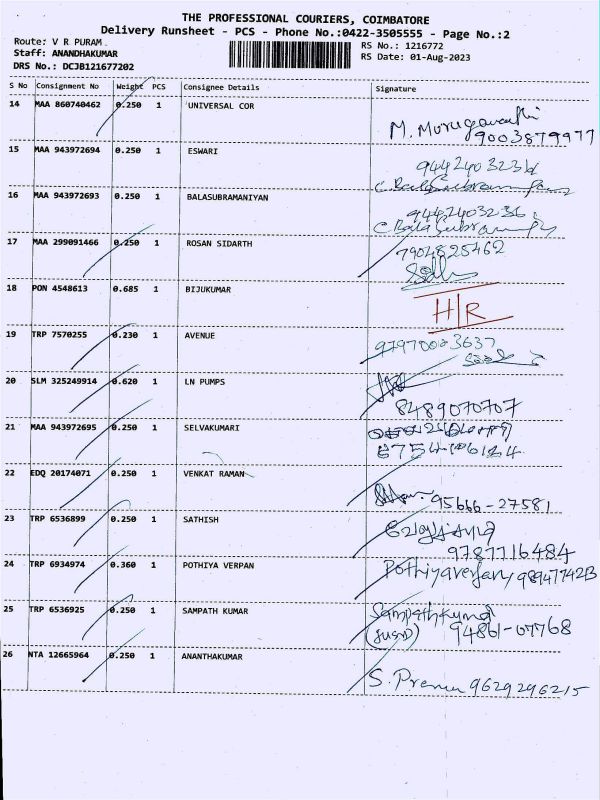 THE PROFESSIONAL COURIERS, COIMBATORE
Delivery Runsheet - PCS - Phone No.:0422-3505555 - Page No.:2
Route: V R PURAM
Staff: ANANDHAKUMAR
DRS No.: DCJB121677202
RS No.: 1216772
RS Date: 01-Aug-2023
S No Consignment No Weight PCS Consignee Details Signature
14 MAA 860740462 0.250 1 UNIVERSAL COR
M. Murugavalli
9003879977
15 MAA 943972694 0.250 1 ESWARI
9442403236
C. BalaSubramaniyan
16 MAA 943972693 0.250 1 BALASUBRAMANIYAN
9442403236
C BalaSubramaniyan
17 MAA 299091466 0.250 1 ROSAN SIDARTH
7904825462
18 PON 4548613 0.685 1 BIJUKUMAR
H/R
19 TRP 7570255 0.230 1 AVENUE
9797003637
20 SLM 325249914 0.620 1 LN PUMPS
8489070707
21 MAA 943972695 0.250 1 SELVAKUMARI
22 EDQ 20174071 0.250 1 VENKAT RAMAN
95666-27581
23 TRP 6536899 0.250 1 SATHISH
9787716484
24 TRP 6934974 0.360 1 POTHIYA VERPAN
Pothiyaverpan 9894774213
25 TRP 6536925 0.250 1 SAMPATH KUMAR
Sampathkumar
94861-07768
26 NTA 12665964 0.250 1 ANANTHAKUMAR
S. Prema 9629296215